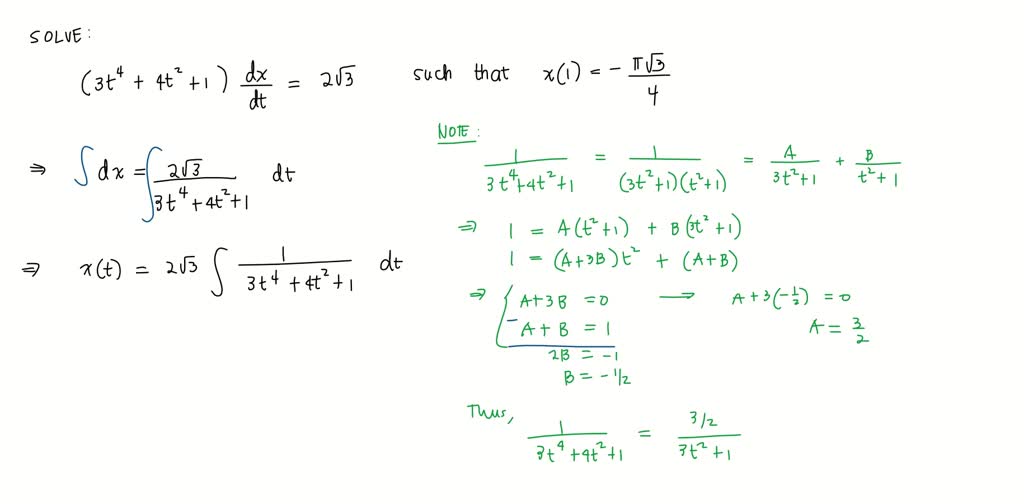 SOLVE:
(3t⁴ + 4t² + 1) dx/dt = 2√3 such that x(1) = - π√3/4
⇒ ∫ dx = ∫ 2√3/(3t⁴ + 4t² + 1) dt
⇒ x(t) = 2√3 ∫ 1/(3t⁴ + 4t² + 1) dt
NOTE:
1/(3t⁴+4t²+1) = 1/((3t²+1)(t²+1)) = A/(3t²+1) + B/(t²+1)
⇒ 1 = A(t²+1) + B(3t²+1)
1 = (A+3B)t² + (A+B)
⇒ { A+3B = 0 → A+3(-1/2) = 0
- A+B = 1 A = 3/2
2B = -1
B = -1/2
Thus,
1/(3t⁴+4t²+1) = (3/2)/(3t²+1)